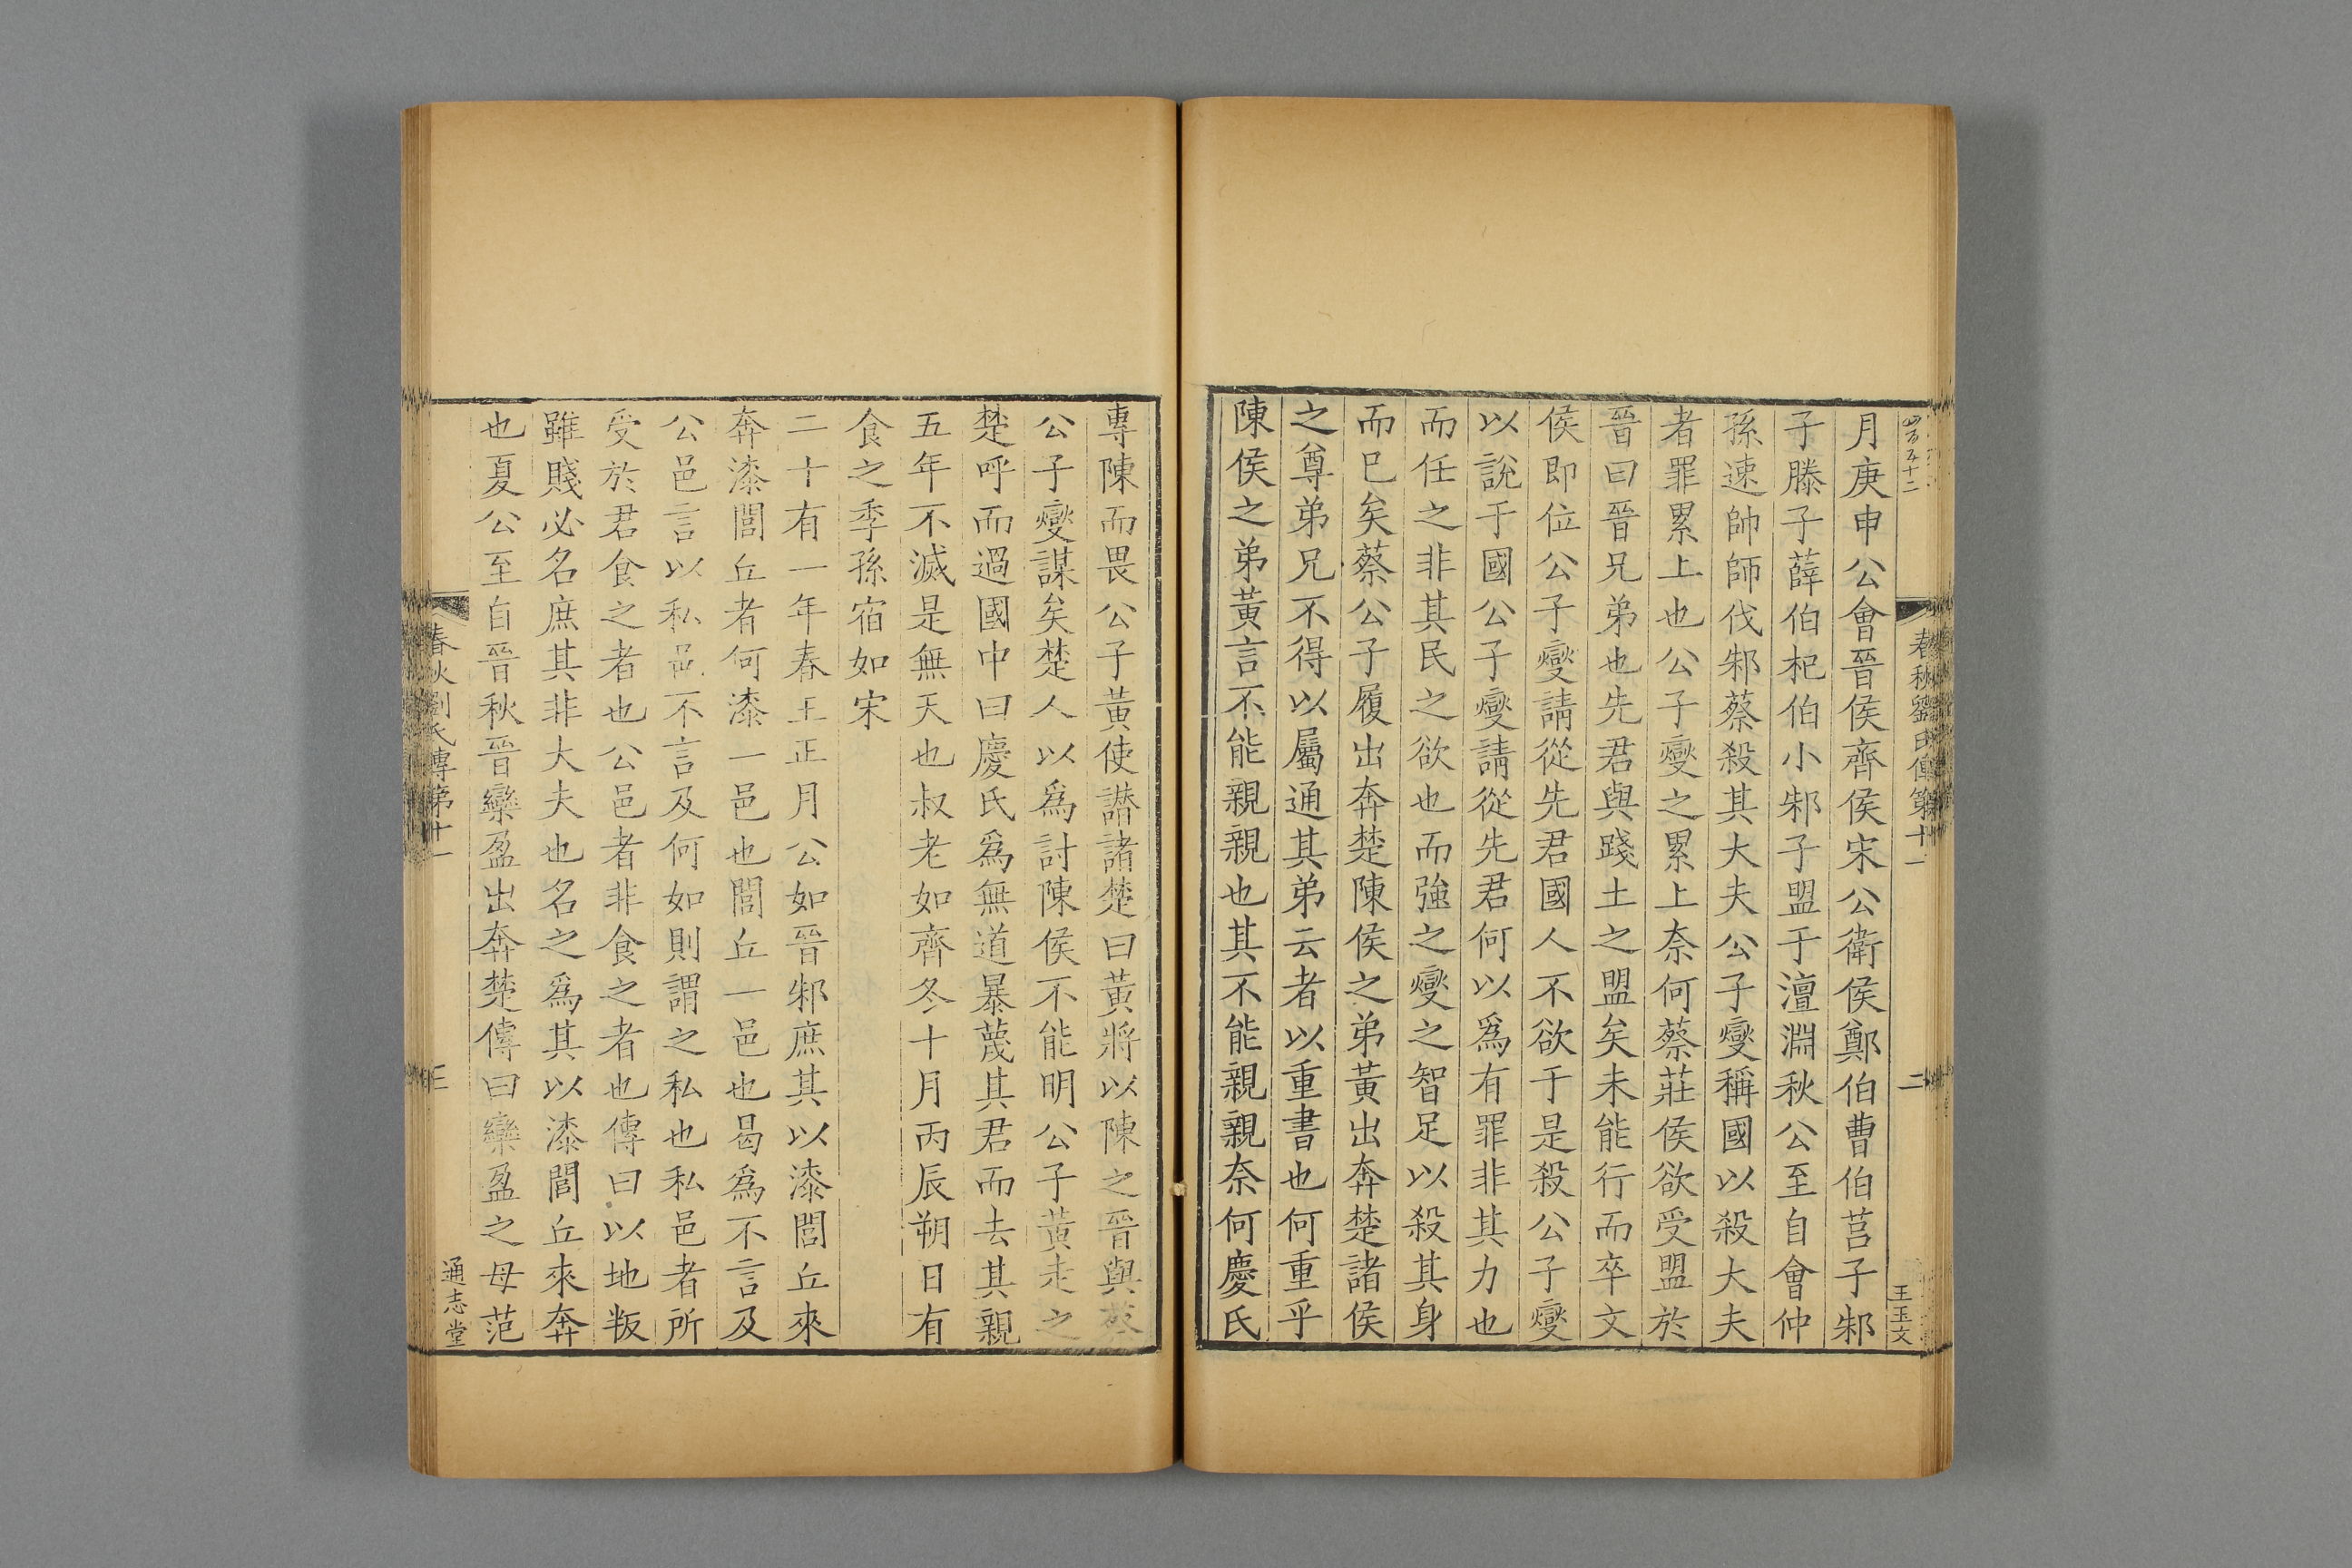 四百五十二
春秋劉氏傳第十一
二
王玉文
月庚申公會晉侯齊侯宋公衛侯鄭伯曹伯莒子邾
子滕子薛伯杞伯小邾子盟于澶淵秋公至自會仲
孫速帥師伐邾蔡殺其大夫公子燮稱國以殺大夫
者罪累上也公子燮之累上奈何蔡莊侯欲受盟於
晉曰晉兄弟也先君與踐土之盟矣未能行而卒文
侯即位公子燮請從先君國人不欲于是殺公子燮
以說于國公子燮請從先君何以爲有罪非其力也
而任之非其民之欲也而強之燮之智足以殺其身
而已矣蔡公子履出奔楚陳侯之弟黃出奔楚諸侯
之尊弟兄不得以屬通其弟云者以重書也何重乎
陳侯之弟黃言不能親親也其不能親親奈何慶氏
專陳而畏公子黃使譖諸楚曰黃將以陳之晉與蔡
公子燮謀矣楚人以爲討陳侯不能明公子黃走之
楚呼而過國中曰慶氏爲無道暴蔑其君而去其親
五年不滅是無天也叔老如齊冬十月丙辰朔日有
食之季孫宿如宋
二十有一年春王正月公如晉邾庶其以漆閭丘來
奔漆閭丘者何漆一邑也閭丘一邑也曷爲不言及
公邑言以私邑不言及何如則謂之私也私邑者所
受於君食之者也公邑者非食之者也傳曰以地叛
雖賤必名庶其非大夫也名之爲其以漆閭丘來奔
也夏公至自晉秋晉欒盈出奔楚傳曰欒盈之母范
春秋劉氏傳第十一
三
通志堂